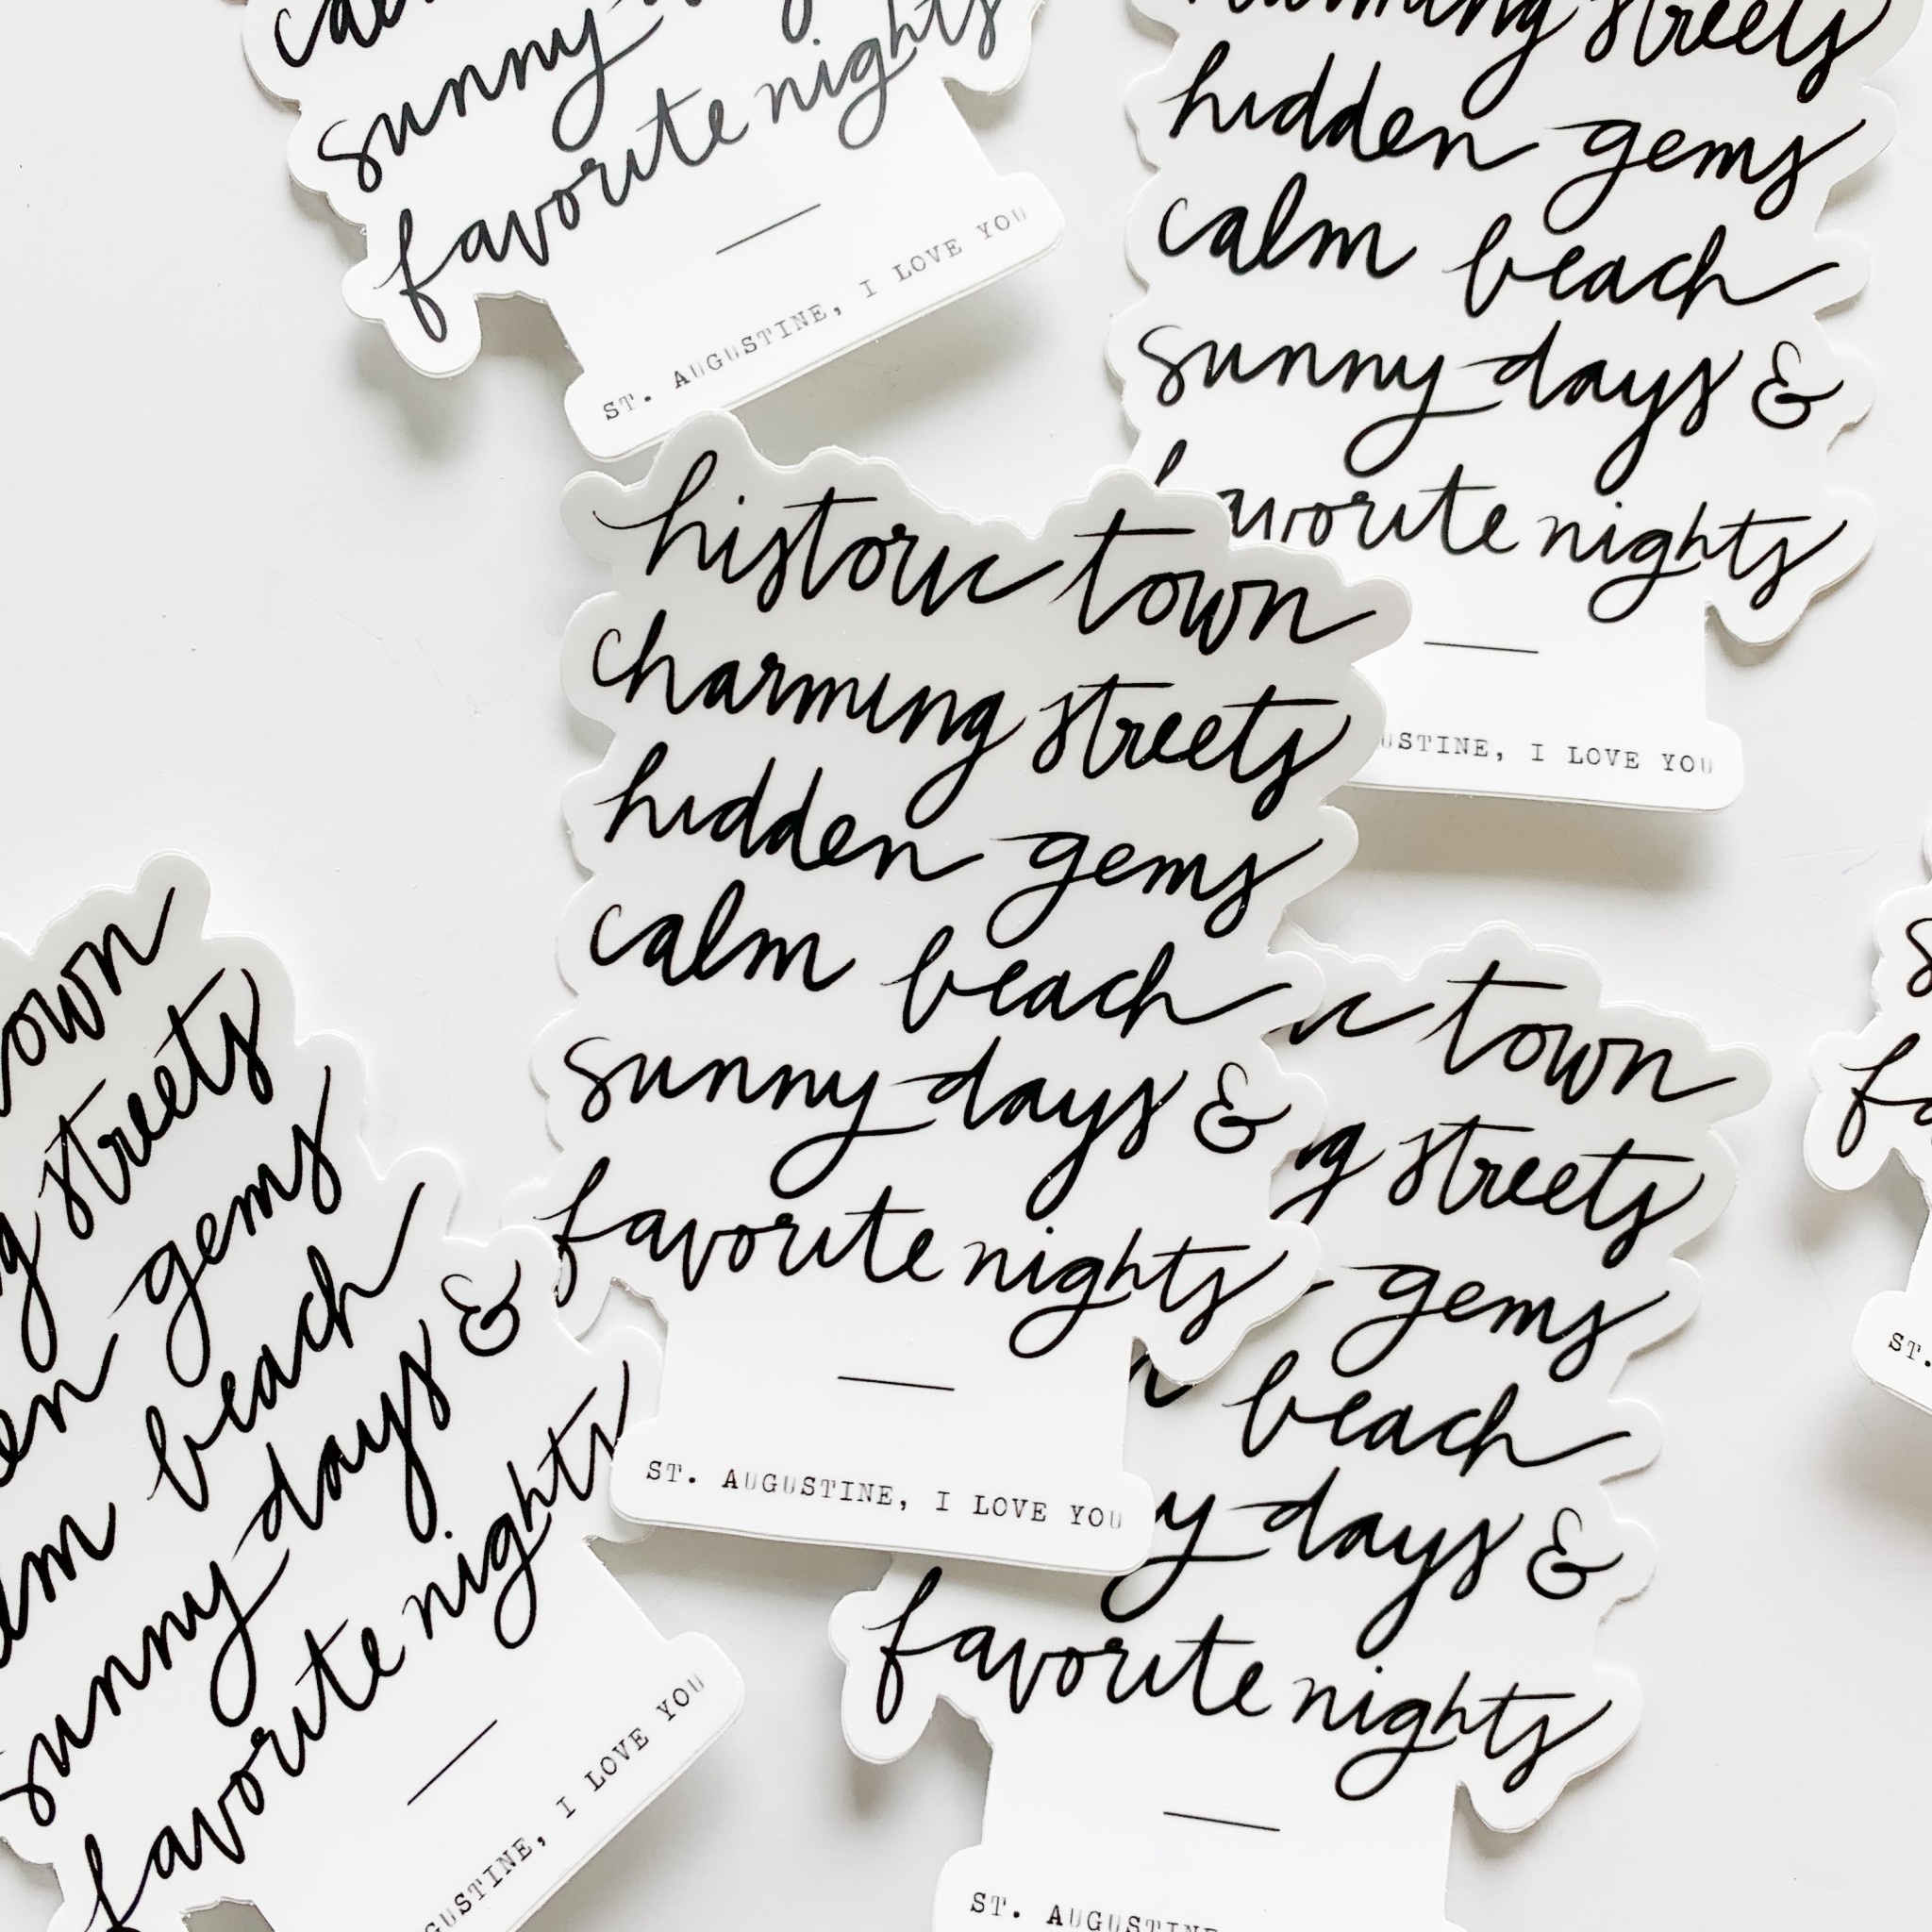 sunny
favorite nights
ST. AUGUSTINE, I LOVE YOU
streets
hidden gems
calm beach
sunny days &
favorite nights
I LOVE YOU
historic town
charming streets
hidden gems
calm beach
sunny days &
favorite nights
ST. AUGUSTINE, I LOVE YOU
streets
gems
beach
sunny days &
favorite nights
I LOVE YOU
town
streets
gems
beach
days &
favorite nights
ST. AUGUSTINE
ST.